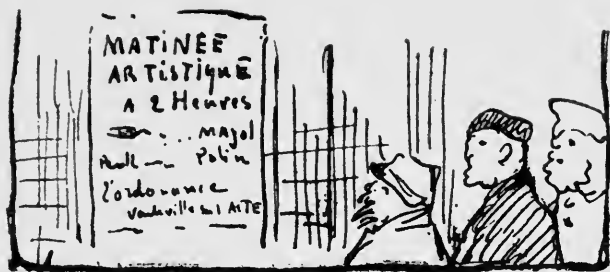 MATINÉE
ARTISTIQUE
A 2 Heures
... MAyol
Polin
l'ordonnance
vaudeville en 1 ACTE